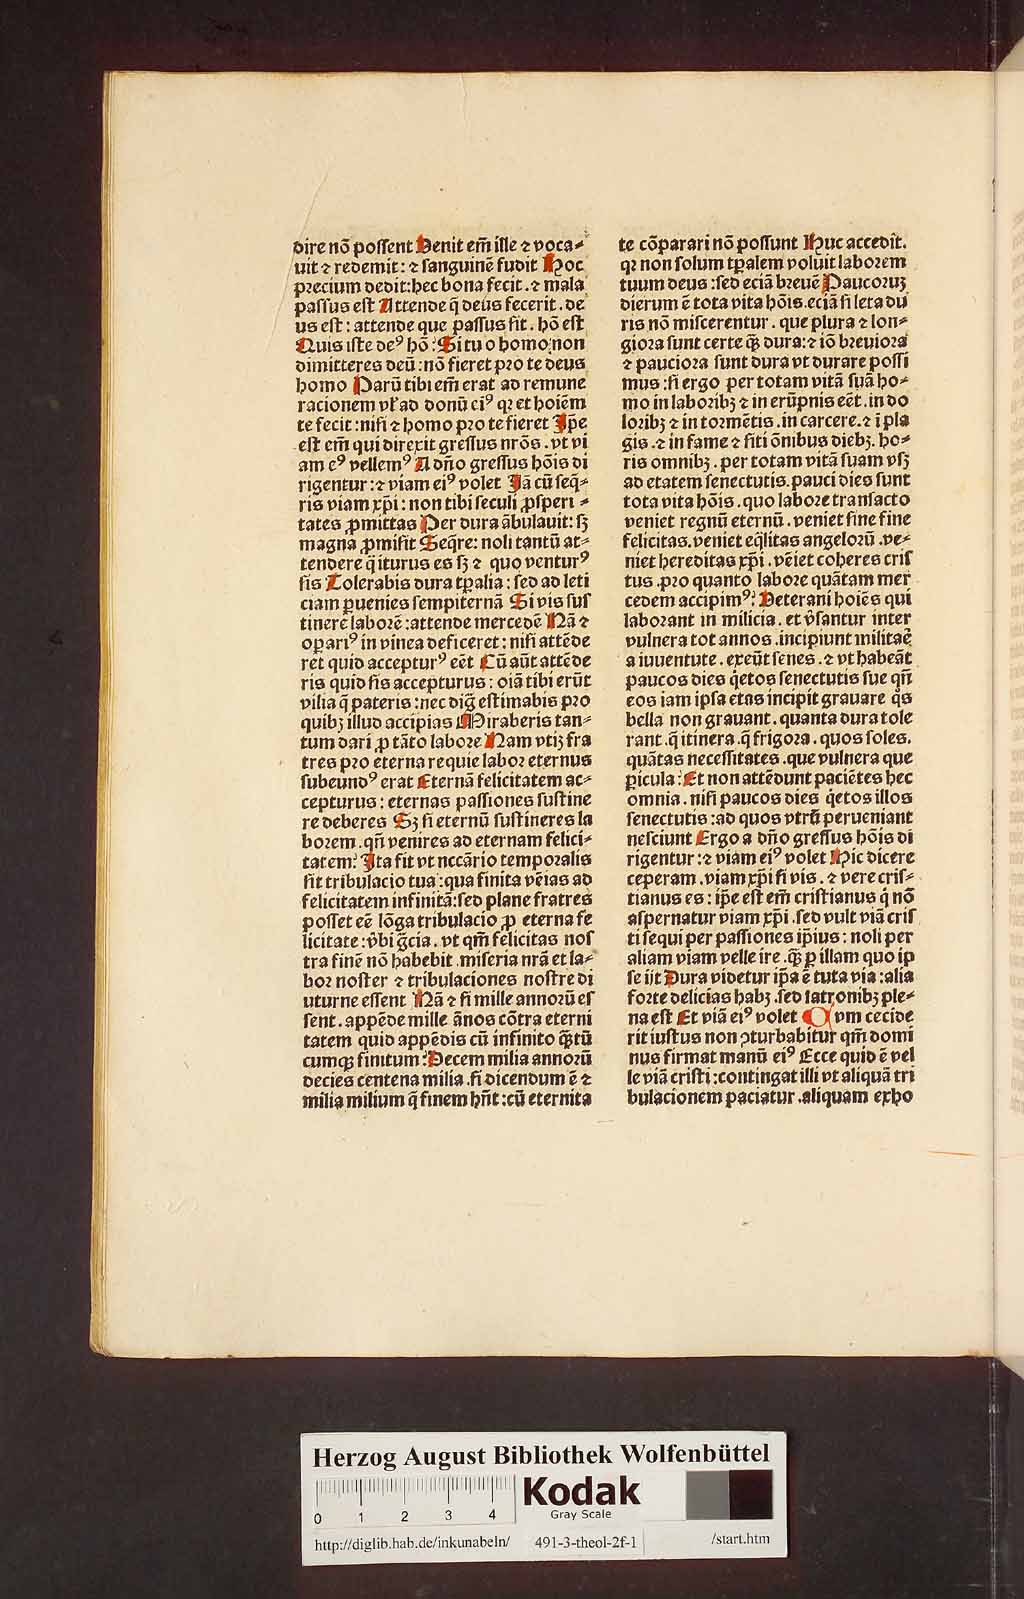 dire nō possent Venit em̄ ille ⁊ voca⸗
uit ⁊ redemit: ⁊ sanguinē fudit Hoc
precium dedit: hec bona fecit . ⁊ mala
passus est Attende q̄ deus fecerit . de
us est : attende que passus sit . hō est
Quis iste deꝰ hō : Si tu o homo non
dimitteres deū : nō fieret pro te deus
homo Parū tibi em̄ erat ad remune
racionem vƚ ad donū ciꝰ qꝛ et hoiēm
te fecit : nisi ⁊ homo pro te fieret Ip̄e
est em̄ qui direxit gressus nr̄os . vt vi
am eꝰ vellemꝰ A dn̄o gressus hōis di
rigentur : ⁊ viam eiꝰ volet Iā cū seq̄⸗
ris viam xp̄i : non tibi seculi ꝓsperi ⸗
tates ꝓmittas Per dura ābulauit : sꝫ
magna ꝓmisit Seq̄re : noli tantū at⸗
tendere q̄ iturus es sꝫ ⁊ quo venturꝰ
sis Tolerabis dura tꝑalia : sed ad leti
ciam ꝑuenies sempiternā Si vis sus
tinere laborē : attende mercedē Nā ⁊
opariꝰ in vinea deficeret : nisi attēde
ret quid accepturꝰ eēt Cū aūt attēde
ris quid sis accepturus : oīa tibi erūt
vilia q̄ pateris : nec diḡ estimabis pro
quibꝫ illud accipias Miraberis tan⸗
tum dari ꝓ tāto labore Nam vtiꝫ fra
tres pro eterna requie labor eternus
subeundꝰ erat Eternā felicitatem ac⸗
cepturus : eternas passiones sustine
re deberes Sꝫ si eternū sustineres la
borem . qn̄ venires ad eternam felici⸗
tatem ? Ita fit vt nccārio temporalis
sit tribulacio tua : qua finita vēias ad
felicitatem infinitā : sed plane fratres
posset eē lōga tribulacio ꝓ eterna fe
licitate : v̄bi gr̄cia . vt qm̄ felicitas nos
tra finē nō habebit . miseria nr̄a et la⸗
bor noster ⁊ tribulaciones nostre di
uturne essent Nā ⁊ si mille annorū es
sent . appēde mille ānos cōtra eterni
tatem quid appēdis cū infinito qͣꝫtū
cumqꝫ finitum ? Decem milia annorū
decies centena milia . si dicendum ē ⁊
milia milium q̄ finem hn̄t : cū eternita
te cōparari nō possunt Huc accedit .
qꝛ non solum tꝑalem voluit laborem
tuum deus : sed eciā breuē Paucoruꝫ
dierum ē tota vita hōis . eciā si leta du
ris nō miscerentur . que plura ⁊ lon⸗
giora sunt certe qͣꝫ dura : ⁊ iō breuiora
⁊ pauciora sunt dura vt durare possi
mus : si ergo per totam vitā suā ho⸗
mo in laboribꝫ ⁊ in erūpnis eēt . in do
loribꝫ ⁊ in tormētis . in carcere . ⁊ ī pla
gis . ⁊ in fame ⁊ siti ōnibus diebꝫ . ho⸗
ris omnibꝫ . per totam vitā suam vsꝫ
ad etatem senectutis . pauci dies sunt
tota vita hōis . quo labore transacto
veniet regnū eternū . veniet fine fine
felicitas . veniet eqͣlitas angelorū . ve⸗
niet hereditas xp̄i . vēiet coheres cris
tus . pro quanto labore quātam mer
cedem accipimꝰ ? Veterani hoiēs qui
laborant in milicia . et v̄santur inter
vulnera tot annos . incipiunt militaē
a iuuentute . exeūt senes . ⁊ vt habeāt
paucos dies qͥetos senectutis sue qn̄
eos iam ipsa etas incipit grauare qͦs
bella non grauant . quanta dura tole
rant . q̄ itinera . q̄ frigora . quos soles .
quātas necessitates . que vulnera que
ꝑicula : Et non attēdunt paciētes hec
omnia . nisi paucos dies qͥetos illos
senectutis : ad quos vtrū perueniant
nesciunt Ergo a dn̄o gressus hōis di
rigentur : ⁊ viam eiꝰ volet Hic dicere
ceperam . viam xp̄i si vis . ⁊ vere cris⸗
tianus es : ip̄e est em̄ cristianus qͥ nō
aspernatur viam xp̄i . sed vult viā cris
ti sequi per passiones ip̄ius : noli per
aliam viam velle ire . qͣꝫ ꝑ illam quo ip
se ijt Dura videtur ip̄a ē tuta via : alia
forte delicias habꝫ . sed latronibꝫ ple⸗
na est Et viā eiꝰ volet Cvm cecide
rit iustus non ꝯturbabitur qm̄ domi
nus firmat manū eiꝰ Ecce quid ē vel
le viā cristi : contingat illi vt aliquā tri
bulacionem paciatur . aliquam exho
Herzog August Bibliothek Wolfenbüttel
0 1 2 3 4
Kodak
Gray Scale
http://diglib.hab.de/inkunabeln/ 491-3-theol-2f-1 /start.htm